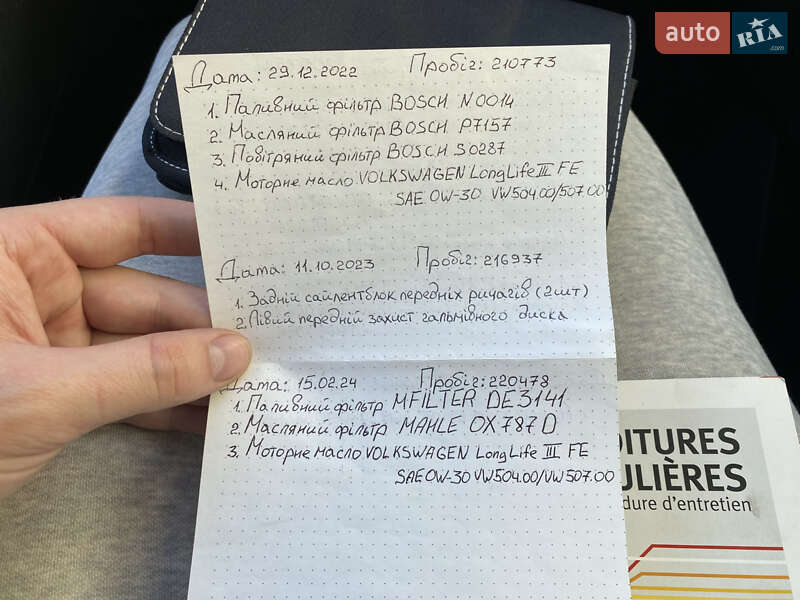 auto RIA.com
Дата: 29.12.2022 Пробіг: 210773
1. Паливний фільтр BOSCH N0014
2. Масляний фільтр BOSCH P7157
3. Повітряний фільтр BOSCH S0287
4. Моторне масло VOLKSWAGEN LongLife III FE
SAE 0W-30 VW504.00/507.00
Дата: 11.10.2023 Пробіг: 216937
1. Задній сайлентблок передніх ричагів (2шт)
2. Лівий передній захист гальмівного диска
Дата: 15.02.24 Пробіг: 220478
1. Паливний фільтр MFILTER DE3141
2. Масляний фільтр MAHLE OX787D
3. Моторне масло VOLKSWAGEN LongLife III FE
SAE 0W-30 VW504.00/VW507.00
OITURES
ULIÈRES
dure d'entretien